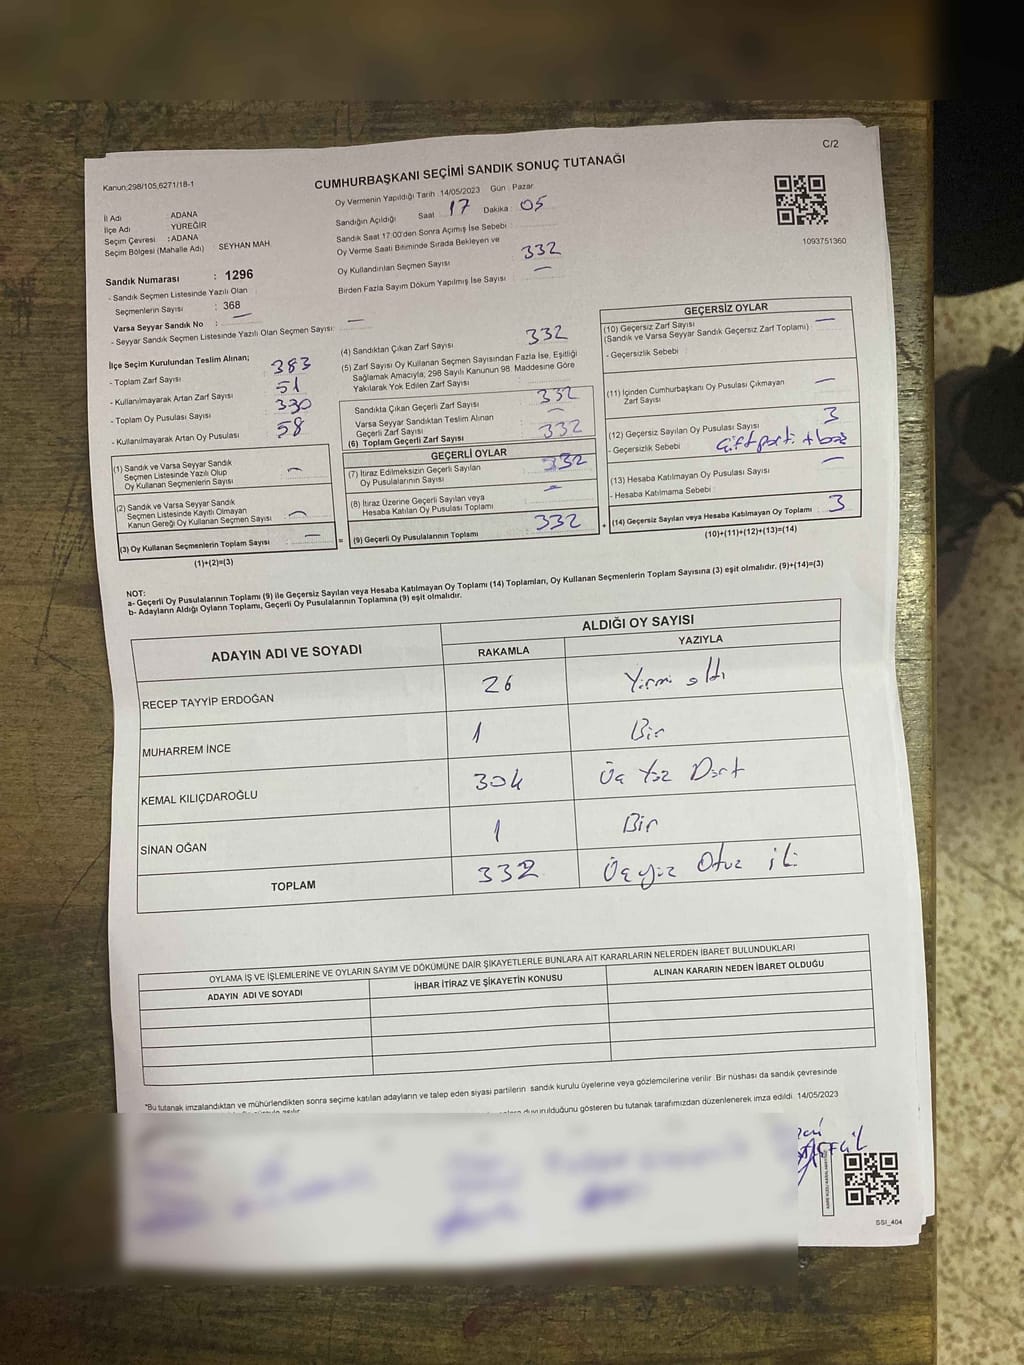 C/2
Kanun;298/105,6271/18-1
CUMHURBAŞKANI SEÇİMİ SANDIK SONUÇ TUTANAĞI
1093751360
İl Adı ADANA
İlçe Adı YÜREĞİR
Seçim Çevresi :ADANA
Seçim Bölgesi (Mahalle Adı) SEYHAN MAH
Sandık Numarası : 1296
- Sandık Seçmen Listesinde Yazılı Olan
Seçmenlerin Sayısı : 368
Varsa Seyyar Sandık No : —
- Seyyar Sandık Seçmen Listesinde Yazılı Olan Seçmen Sayısı: —
Oy Vermenin Yapıldığı Tarih :14/05/2023 Gün : Pazar
Sandığın Açıldığı Saat 17 Dakika : 05
Sandık Saat 17:00'den Sonra Açımış İse Sebebi :
Oy Verme Saati Bitiminde Sırada Bekleyen ve
Oy Kullandırılan Seçmen Sayısı 332
Birden Fazla Sayım Döküm Yapılmış İse Sayısı —
İlçe Seçim Kurulundan Teslim Alınan;
- Toplam Zarf Sayısı : 383
- Kullanılmayarak Artan Zarf Sayısı : 51
- Toplam Oy Pusulası Sayısı : 330
- Kullanılmayarak Artan Oy Pusulası : 58
(1) Sandık ve Varsa Seyyar Sandık
Seçmen Listesinde Yazılı Olup
Oy Kullanan Seçmenlerin Sayısı : —
(2) Sandık ve Varsa Seyyar Sandık
Seçmen Listesinde Kayıtlı Olmayan
Kanun Gereği Oy Kullanan Seçmen Sayısı : —
(3) Oy Kullanan Seçmenlerin Toplam Sayısı : —
(1)+(2)=(3)
(4) Sandıktan Çıkan Zarf Sayısı : 332
(5) Zarf Sayısı Oy Kullanan Seçmen Sayısından Fazla İse, Eşitliği
Sağlamak Amacıyla; 298 Sayılı Kanunun 98. Maddesine Göre
Yakılarak Yok Edilen Zarf Sayısı
Sandıkta Çıkan Geçerli Zarf Sayısı : 332
Varsa Seyyar Sandıktan Teslim Alınan
Geçerli Zarf Sayısı : —
(6) Toplam Geçerli Zarf Sayısı : 332
GEÇERLİ OYLAR
(7) İtiraz Edilmeksizin Geçerli Sayılan
Oy Pusulalarının Sayısı : 332
(8) İtiraz Üzerine Geçerli Sayılan veya
Hesaba Katılan Oy Pusulası Toplamı : —
= (9) Geçerli Oy Pusulalarının Toplamı : 332 +
GEÇERSİZ OYLAR
(10) Geçersiz Zarf Sayısı
(Sandık ve Varsa Seyyar Sandık Geçersiz Zarf Toplamı) : —
- Geçersizlik Sebebi
(11) İçinden Cumhurbaşkanı Oy Pusulası Çıkmayan
Zarf Sayısı —
(12) Geçersiz Sayılan Oy Pusulası Sayısı : 3
- Geçersizlik Sebebi : Çift parti
(13) Hesaba Katılmayan Oy Pusulası Sayısı —
- Hesaba Katılmama Sebebi
(14) Geçersiz Sayılan veya Hesaba Katılmayan Oy Toplamı : 3
(10)+(11)+(12)+(13)=(14)
NOT:
a- Geçerli Oy Pusulalarının Toplamı (9) ile Geçersiz Sayılan veya Hesaba Katılmayan Oy Toplamı (14) Toplamları, Oy Kullanan Seçmenlerin Toplam Sayısına (3) eşit olmalıdır. (9)+(14)=(3)
b- Adayların Aldığı Oyların Toplamı, Geçerli Oy Pusulalarının Toplamına (9) eşit olmalıdır.
ADAYIN ADI VE SOYADI ALDIĞI OY SAYISI
RAKAMLA YAZIYLA
RECEP TAYYİP ERDOĞAN 26 Yirmi altı
MUHARREM İNCE 1 Bir
KEMAL KILIÇDAROĞLU 304 Üç Yüz Dört
SİNAN OĞAN 1 Bir
TOPLAM 332 Üçyüz Otuz iki
OYLAMA İŞ VE İŞLEMLERİNE VE OYLARIN SAYIM VE DÖKÜMÜNE DAİR ŞİKAYETLERLE BUNLARA AİT KARARLARIN NELERDEN İBARET BULUNDUKLARI
ADAYIN ADI VE SOYADI İHBAR İTİRAZ VE ŞİKAYETİN KONUSU ALINAN KARARIN NEDEN İBARET OLDUĞU
*Bu tutanak imzalandıktan ve mühürlendikten sonra seçime katılan adayların ve talep eden siyasi partilerin sandık kurulu üyelerine veya gözlemcilerine verilir. Bir nüshası da sandık çevresinde
duyurulduğunu gösteren bu tutanak tarafımızdan düzenlenerek imza edildi. 14/05/2023
SSI_404